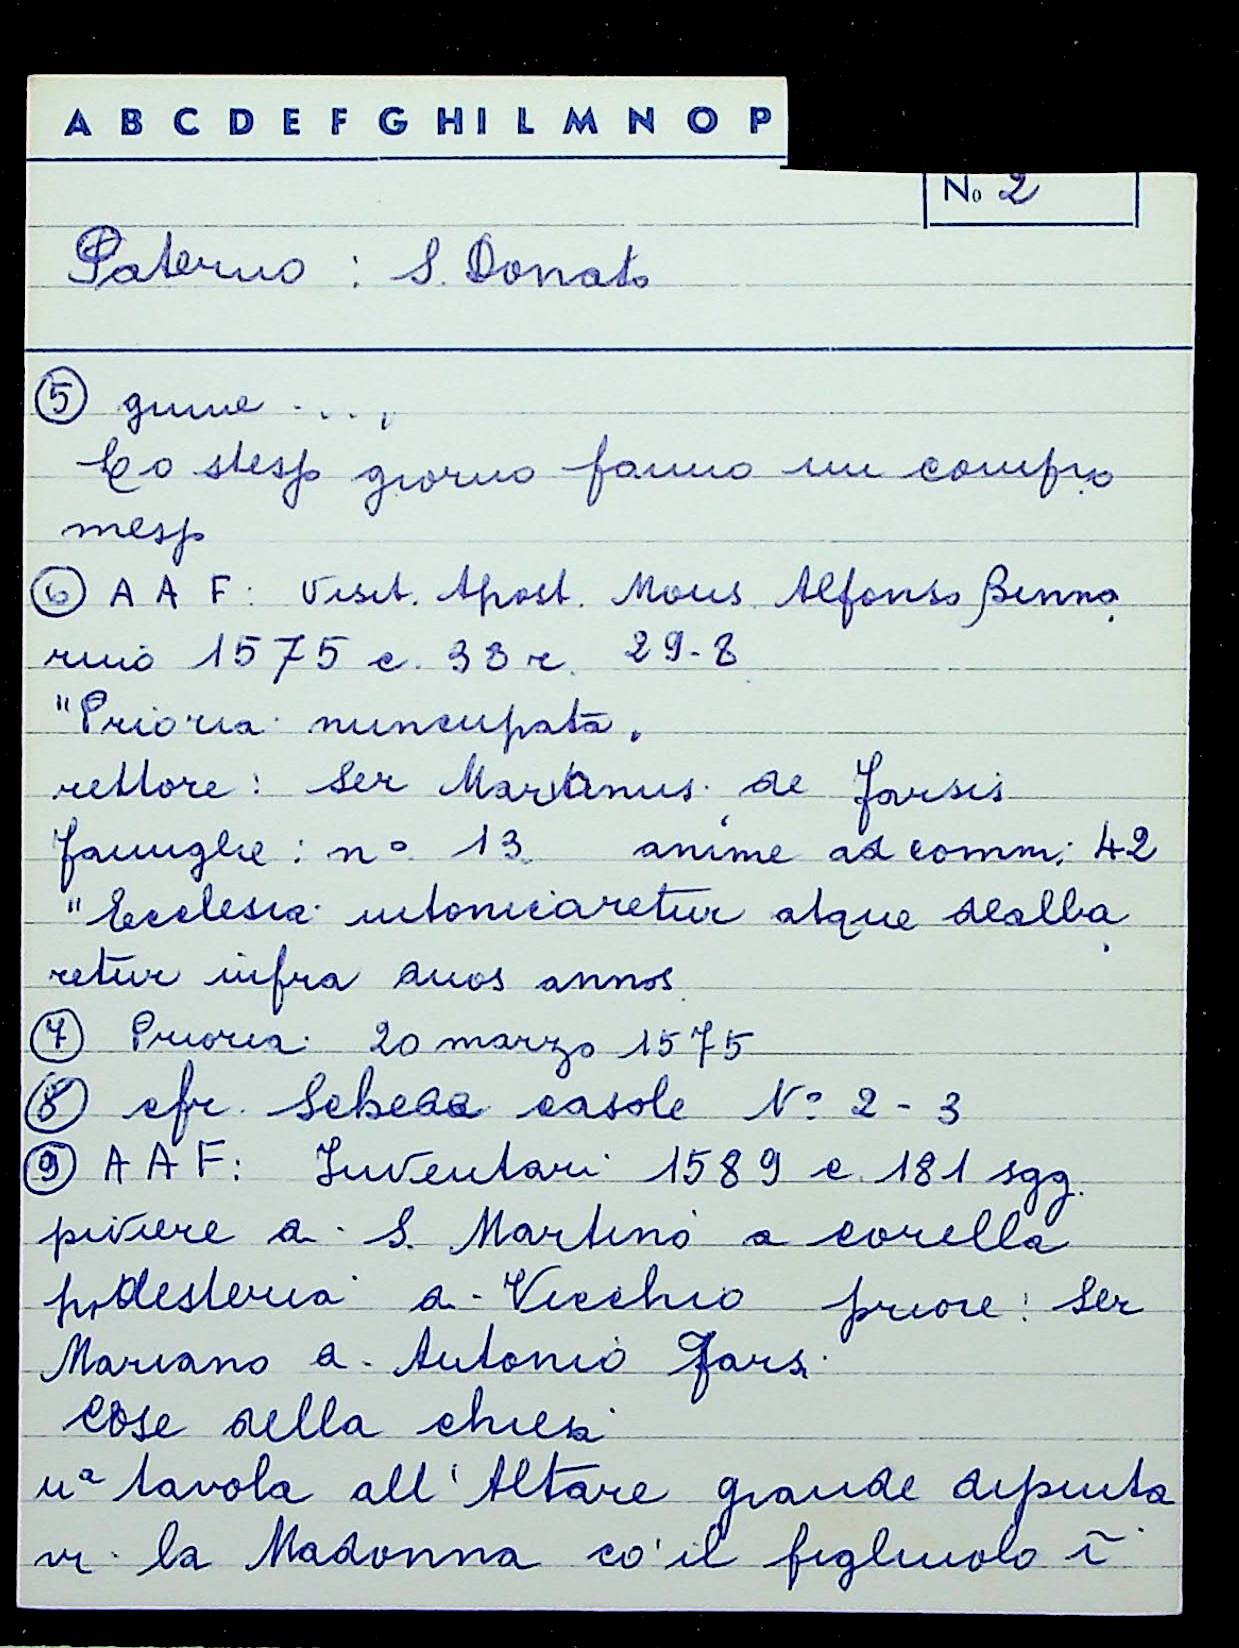 A B C D E F G H I L M N O P
No 2
Paterno : S. Donato
5 gnine ....
Lo stesso giorno fanno un compro
messo
6 A A F: Visit. Apost. Mons. Alfonso Binna
rino 1575 c. 33 r. 29-8
"Prioria nuncupata.
rettore: Ser Marianus de Farsis
famiglie: n° 13 anime ad comm: 42
"Ecclesia intonicaretur atque dealba
retur infra duos annos
7 Prioria 20 marzo 1575
8 cfr. Scheda casole N° 2 - 3
9 A A F: Inventari 1589 c. 181 sgg.
piviere d. S. Martino a corella
podesteria d. Vicchio priore: Ser
Mariano d. Antonio Farsi
Cose della chiesa
nª tavola all'Altare grande dipinta
vi la Madonna co' il figliuolo ĩ